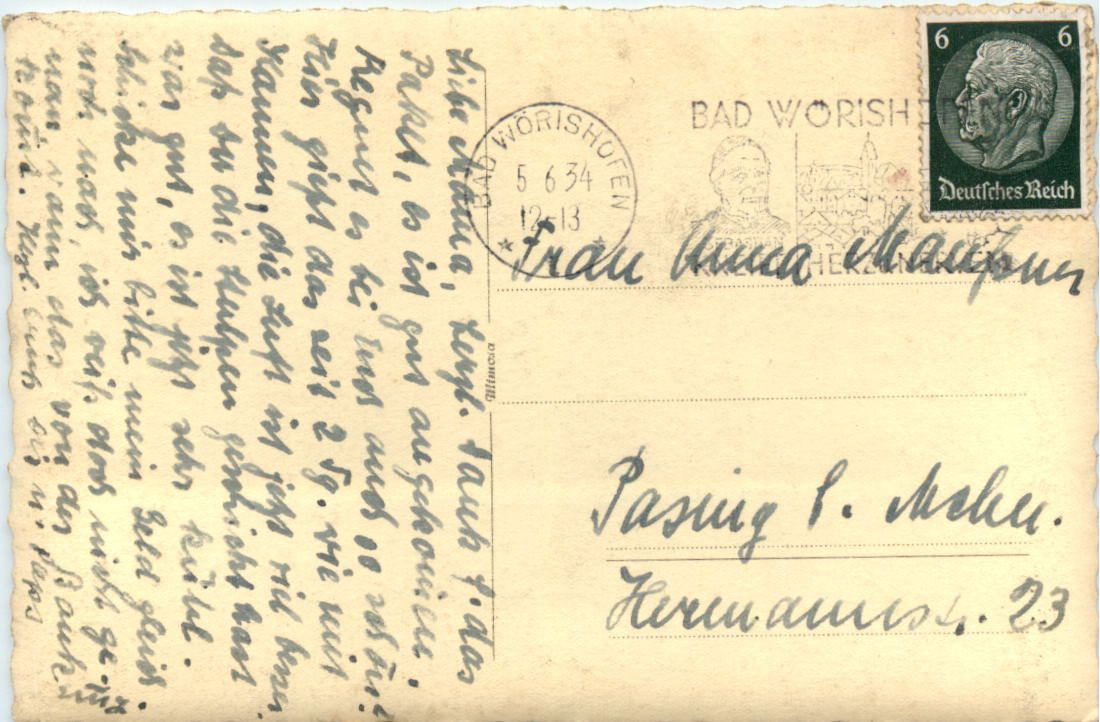 Liebe Mama, herzl. Dank f. das
Paket, es ist gut angekommen.
Regnet es bei Euch auch so schön?
Hier gießt das seit 2 Tg. wie mit
Kannen, die Luft ist jetzt viel besser
daß du die geschickt hast
war gut, es ist jetzt sehr kühl.
Schicke mir bitte mein Geld gleich
noch nach, ich weiß doch nicht
wann das von der Bank
kommt. Herzl.
BAD WÖRISHOFEN
5 6 34
12-13
BAD WÖRISH
HERZ
6 6
Deutsches Reich
Mimosa
Frau Anna
Pasing b. Mchn.
Hermannstr. 23